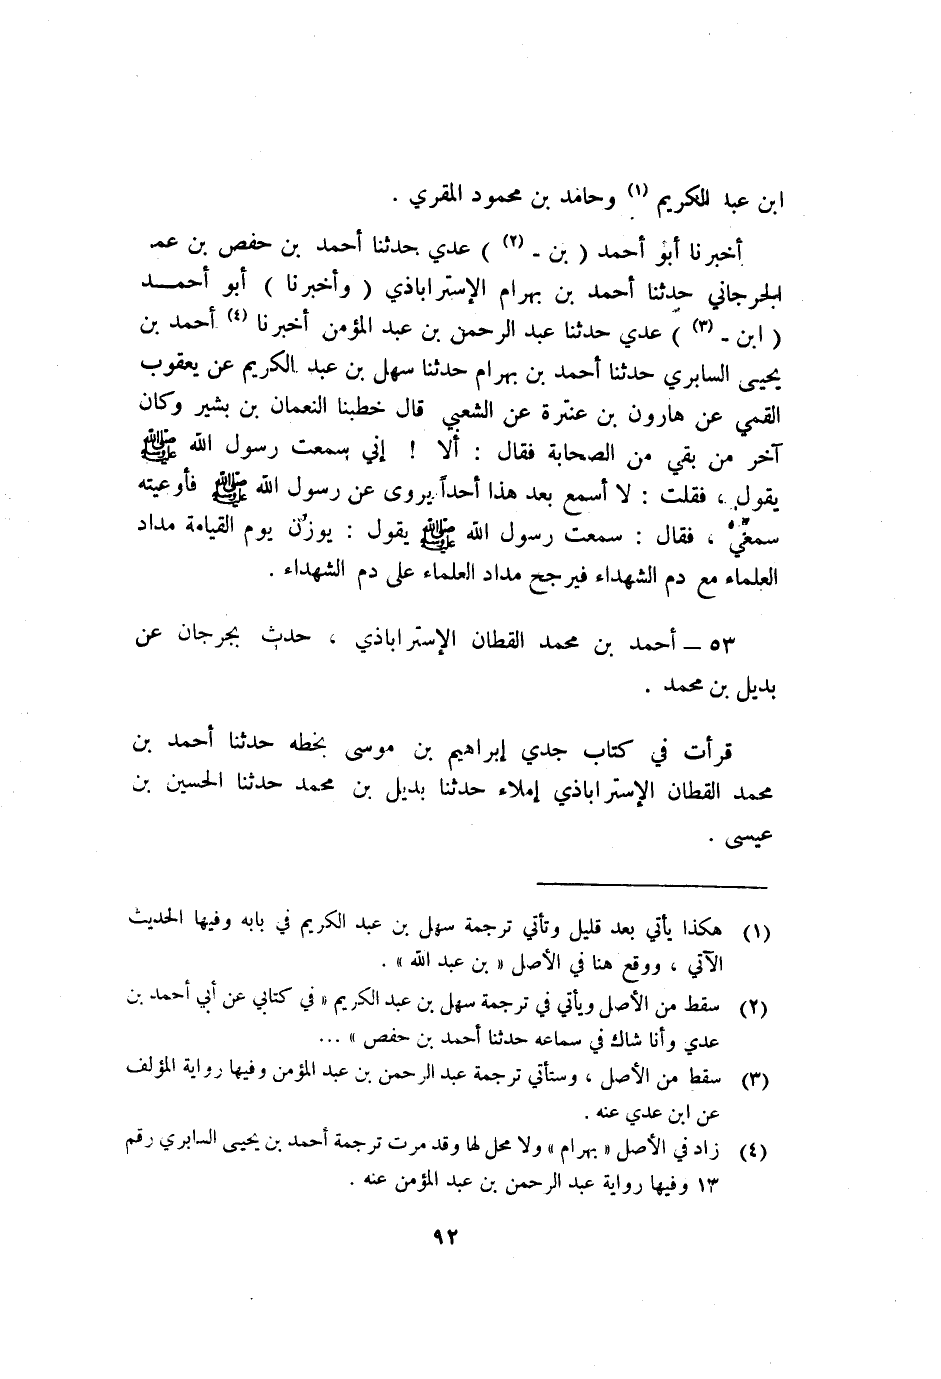 ابن عبد الكريم (١) وحامد بن محمود المقري .
أخبرنا أبو أحمد ( بن ـ (٢) ) عدي حدثنا أحمد بن حفص بن عمر
الجرجاني حدثنا أحمد بن بهرام الإستراباذي ( وأخبرنا ) أبو أحمــد
( ابن ـ (٣) ) عدي حدثنا عبد الرحمن بن عبد المؤمن أخبرنا (٤) أحمد بن
يحيى السابري حدثنا أحمد بن بهرام حدثنا سهل بن عبد الكريم عن يعقوب
القمي عن هارون بن عنترة عن الشعبي قال خطبنا النعمان بن بشير وكان
آخر من بقي من الصحابة فقال : ألا ! إني سمعت رسول الله ﷺ
يقول ، فقلت : لا أسمع بعد هذا أحداً يروى عن رسول الله ﷺ فأوعيته
سمعي ، فقال : سمعت رسول الله ﷺ يقول : يوزن يوم القيامة مداد
العلماء مع دم الشهداء فيرجح مداد العلماء على دم الشهداء .
٥٣ ــ أحمد بن محمد القطان الإستراباذي ، حدث بجرجان عن
بديل بن محمد .
قرأت في كتاب جدي إبراهيم بن موسى بخطه حدثنا أحمد بن
محمد القطان الإستراباذي إملاء حدثنا بديل بن محمد حدثنا الحسين بن
عيسى .
(١) هكذا يأتي بعد قليل وتأتي ترجمة سهل بن عبد الكريم في بابه وفيها الحديث
الآتي ، ووقع هنا في الأصل « بن عبد الله » .
(٢) سقط من الأصل ويأتي في ترجمة سهل بن عبد الكريم « في كتابي عن أبي أحمد بن
عدي وأنا شاك في سماعه حدثنا أحمد بن حفص » ...
(٣) سقط من الأصل ، وستأتي ترجمة عبد الرحمن بن عبد المؤمن وفيها رواية المؤلف
عن ابن عدي عنه .
(٤) زاد في الأصل « بهرام » ولا محل لها وقد مرت ترجمة أحمد بن يحيى السابري رقم
١٣ وفيها رواية عبد الرحمن بن عبد المؤمن عنه .
٩٢